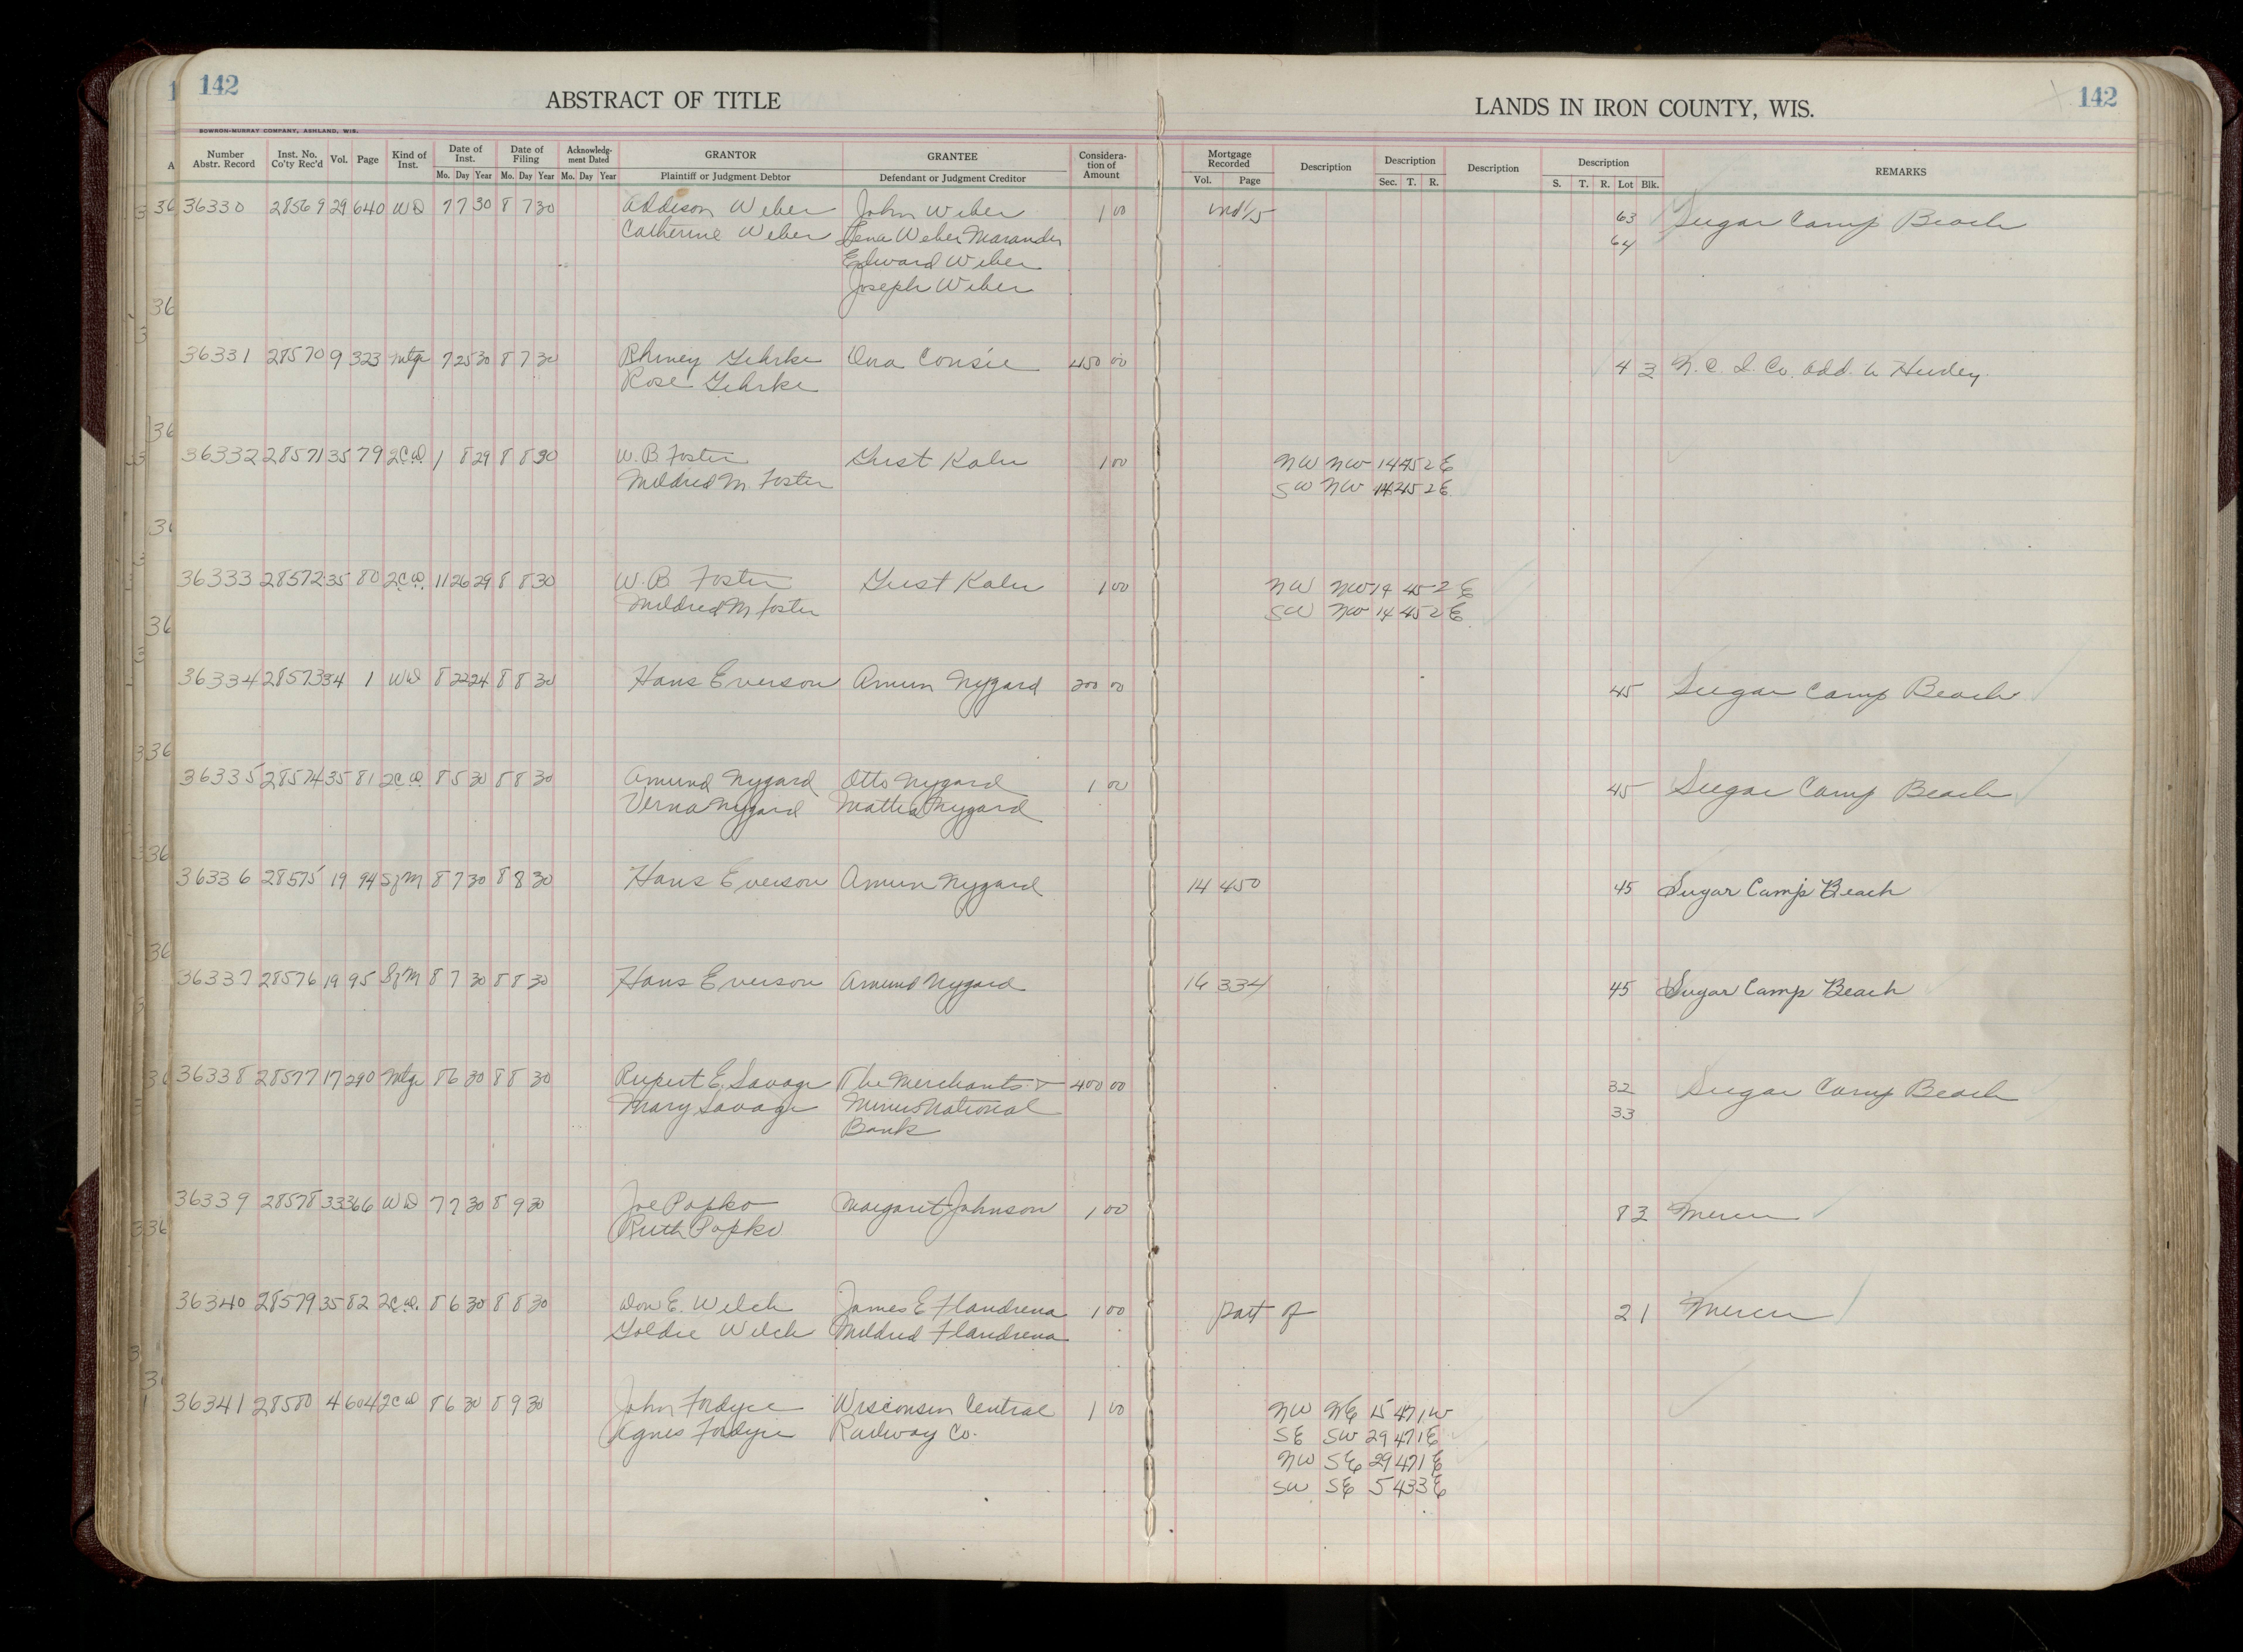 142 ABSTRACT OF TITLE LANDS IN IRON COUNTY, WIS. 142
BOWRON-MURRAY COMPANY, ASHLAND, WIS.
Number Abstr. Record Inst. No. Co'ty Rec'd Vol. Page Kind of Inst. Date of Inst. Date of Filing Acknowledg-ment Dated GRANTOR GRANTEE Considera-tion of Amount Mortgage Recorded Description Description Description Description REMARKS
Mo. Day Year Mo. Day Year Mo. Day Year Plaintiff or Judgment Debtor Defendant or Judgment Creditor Vol. Page Sec. T. R. S. T. R. Lot Blk.
36330 28569 29 640 WD 7 7 30 8 7 30 Addison Weber John Weber 1 00 und 1/5 63 Sugar Camp Beach
Catherine Weber Lena Weber Marander 64
Edward Weber
Joseph Weber
36331 28570 9 323 mtg 7 25 30 8 7 30 Gehrke Ora Consie 450 00 4 3 N. C. I. Co. Add. to Hurley
Rose Gehrke
36332 28571 35 79 2CD. 1 8 29 8 8 30 W. B. Foster Gust Kalu 1 00 NW NW 14 45 2 E
Mildred M. Foster SW NW 14 45 2 E
36333 28572 35 80 2CD. 11 26 29 8 8 30 W. B. Foster Gust Kalu 1 00 NW NW 14 45 2 E
Mildred M Foster SW NW 14 45 2 E
36334 28573 34 1 WD 8 22 24 8 8 30 Hans Everson Amun Nygard 200 00 45 Sugar Camp Beach
36335 28574 35 81 2CD 8 5 30 8 8 30 Amund Nygard Otto Nygard 1 00 45 Sugar Camp Beach
Verna Nygard Mattia Nygard
36336 28575 19 94 SfM 8 7 30 8 8 30 Hans Everson Amun Nygard 14 450 45 Sugar Camp Beach
36337 28576 19 95 SfM 8 7 30 8 8 30 Hans Everson Amund Nygard 16 334 45 Sugar Camp Beach
36338 28577 17 290 mtg 8 6 30 8 8 30 Rupert E. Savage The Merchants & 400 00 32 Sugar Camp Beach
Mary Savage Miners National 33
Bank
36339 28578 33 366 WD 7 7 30 8 9 30 Joe Popko Margaret Johnson 1 00 8 3 Mercer
Ruth Popko
36340 28579 35 82 2CD. 8 6 30 8 8 30 Don E. Welch James E Flandrena 1 00 part of 2 1 Mercer
Goldie Welch Mildred Flandrena
36341 28580 4 604 2CD 8 6 30 8 9 30 John Fordyce Wisconsin Central 1 00 NW NE 15 47 1 W
Agnes Fordyce Railway Co. SE SW 29 47 1 E
NW SE 29 47 1 E
SW SE 5 43 3 E